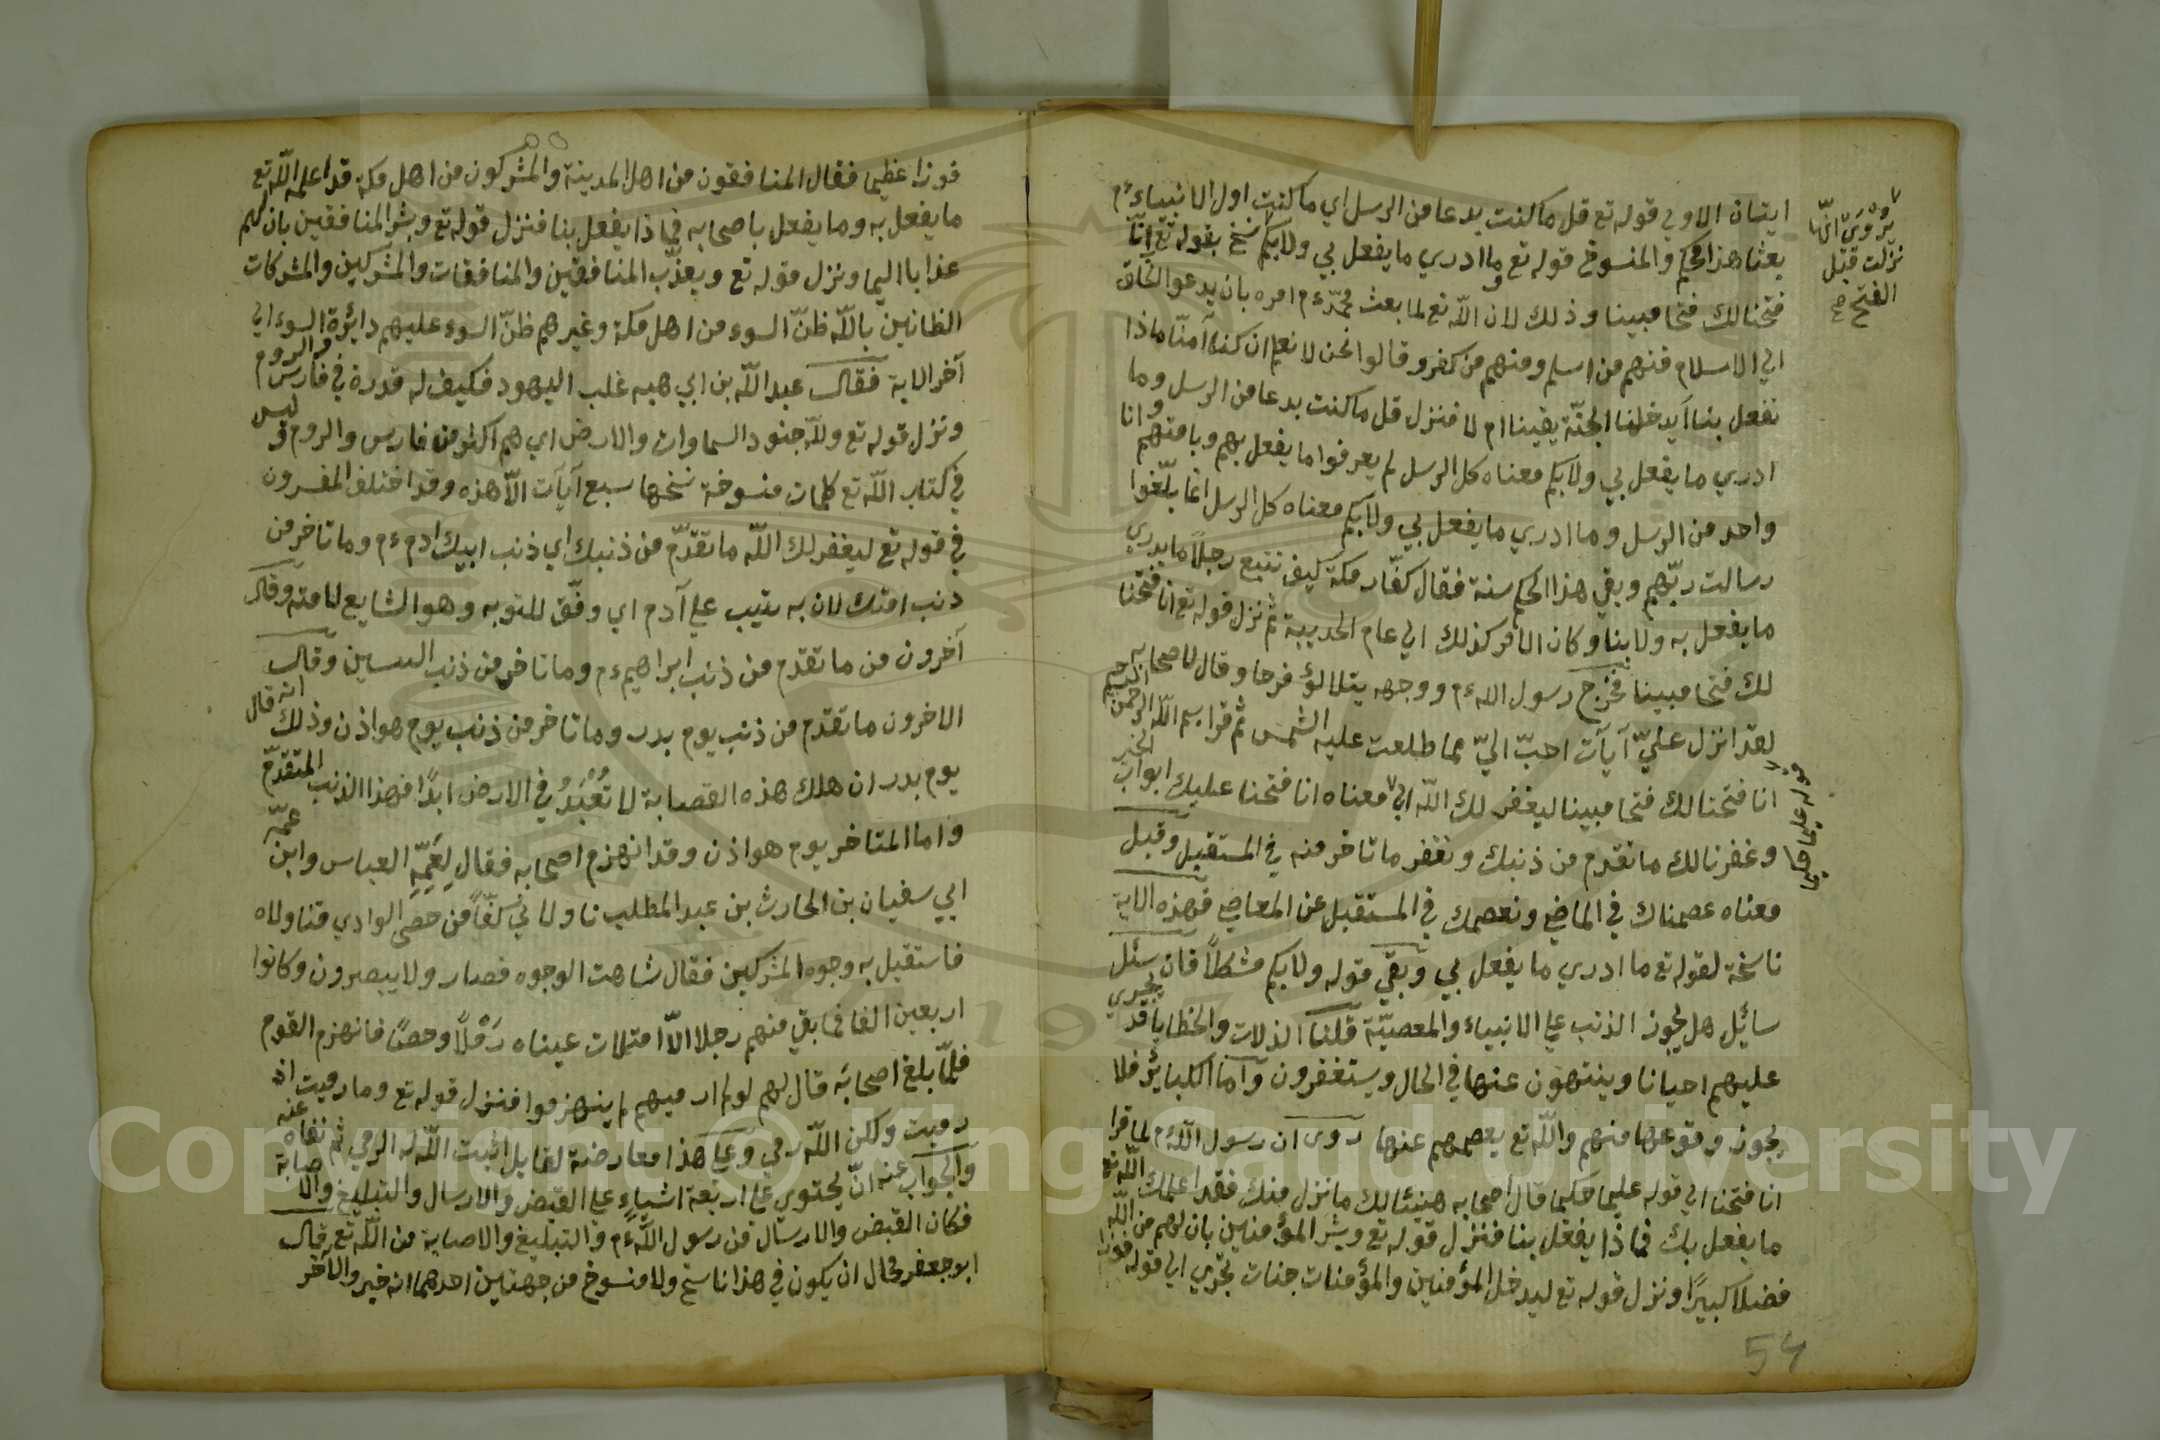 ايتان الاولي قوله تع قل ما كنت بدعا من الرسل اي ما كنت اول الانبياء ءم
بعثنا هذا محكم والمنسوخ قوله تع وما ادري ما يفعل بي ولا بكم نسخ بقوله تع انا
فتحنا لك فتحا مبينا وذلك لان الله تع لما بعث محمد ءم امره بان يدعو الخلق
الي الاسلام فمنهم من اسلم ومنهم من كفر وقالوا نحن لا نعلم ان كنا آمنا ماذا
تفعل بنا ايدخلنا الجنّة يقينا ام لا فنزل قل ما كنت بدعا من الرسل وما
ادري ما يفعل بي ولا بكم معناه كل الرسل لم يعرفوا ما يفعل بهم وبامتهم وانا
واحد من الرسل وما ادري ما يفعل بي ولا بكم معناه كل الرسل انما بلّغوا
رسالت ربّهم وبقي هذا الحكم سنة فقال كفّار مكة كيف نتبع رجلاً ما يدري
ما يفعل به ولا بنا وكان الامر كذلك الي عام الحديبية ثم نزل قوله تع انا فتحنا
لك فتحا مبينا فخرج رسول الله ءم ووجهه يتلالؤ فرحا وقال لاصحابه
لقد انزل عليّ آيات احبّ اليّ مما طلعت عليه الشمس ثم قرا بسم الله الرحمن الرحيم
انا فتحنا لك فتحا مبينا ليغفر لك الله الي معناه انا فتحنا عليك ابواب الخير
وغفرنا لك ما تقدم من ذنبك ونغفر ما تاخر منه في المستقبل وقيل
معناه عصمناك في الماضي ونعصمك في المستقبل عن المعاصي فهذه الاية
ناسخة لقوله تع ما ادري ما يفعل بي وبقي قوله ولا بكم مشكلاً فان سئل
سائل هل يجوز الذنب علي الانبياء والمعصيّة قلنا الذلات والخطايا قد يجري
عليهم احيانا وينتهون عنها في الحال ويستغفرون وأما الكبائر فلا
يجوز وقوعها منهم والله تع يعصمهم عنها روى ان رسول الله ءم لما قرا
انا فتحنا الي قوله عليما حكيما قال اصحابه هنيئا لك ما نزل منك فقد اعلمك الله تع
ما يفعل بك فما ذا يفعل بنا فنزل قوله تع وبشر المؤمنين بان لهم من الله
فضلا كبيرًا ونزل قوله تع ليدخل المؤمنين والمؤمنات جنات تجري الي قوله فوزا
يروى انّها
نزلت قبل
الفتح صح
قوله عليما حكيما
54
٥٥
فوزا عظيما فقال المنافقون من اهل المدينة والمشركون من اهل مكة قد اعلمه الله تع
ما يفعل به وما يفعل باصحابه فما ذا يفعل بنا فنزل قوله تع وبشر المنافقين بان لهم
عذابا اليما ونزل قوله تع ويعذّب المنافقين والمنافقات والمشركين والمشركات
الظانين بالله ظنّ السوء من اهل مكة وغيرهم ظنّ السوء عليهم دائرة السوء الي
آخر الاية فقال عبد الله بن ابي هبه غلب اليهود فكيف له قدرة في فارس والروم
ونزل قوله تع ولله جنود السماوات والارض اي هم اكثر من فارس والروم وليس
في كتاب الله تع كلمات منسوخة نسخها سبع آيات الا هذه وقد اختلف المفسرون
في قوله تع ليغفر لك الله ما تقدّم من ذنبك اي ذنب ابيك ادم ءم وما تاخر من
ذنب امتك لان به يتيب علي آدم اي وفّق للتوبه وهو الشايع لامته وقال
آخرون من ما تقدم من ذنب ابراهيم ءم وما تاخر من ذنب وقال
الاخرون ما تقدم من ذنب يوم بدر وما تاخر من ذنب يوم هوازن وذلك انه قال
يوم بدر ان هلك هذه العصابة لا تُعْبَدُ في الارض ابدًا فهذا الذنب المتقدّم
واما المتاخر يوم هوازن وقد انهزم اصحابه فقال لِعَمِّهِ العباس وابن عمّه
ابي سفيان بن الحارث بن عبد المطلب ناولاني كفًّا من حصى الوادي فناولاه
فاستقبل به وجوه المشركين فقال شاهت الوجوه فصار ولا يبصرون وكانوا
اربعين الفا فما بقي منهم رجلا الاّ امتلات عيناه رَمْلاً وحصًا فانهزم القوم
فلمّا بلغ اصحابَه قال لهم لو لم ارميهم لم ينهزموا فنزل قوله تع وما رميت اذ
رميت ولكن الله رمي وعلي هذا معارضة لقايل اثبت الله له الرمي ثم نفاه عنه
والجواب عنه انّ يحتوي علي اربعة اشياءٍ علي القبض والارسال والتبليغ والاصابة
فكان القبض والارسال من رسول الله ءم والتبليغ والاصابة من الله تع قال
ابو جعفر محال ان يكون في هذا ناسخ ولا منسوخ من جهتين احدهما انه خبر والآخر
Copyright © King Saud University